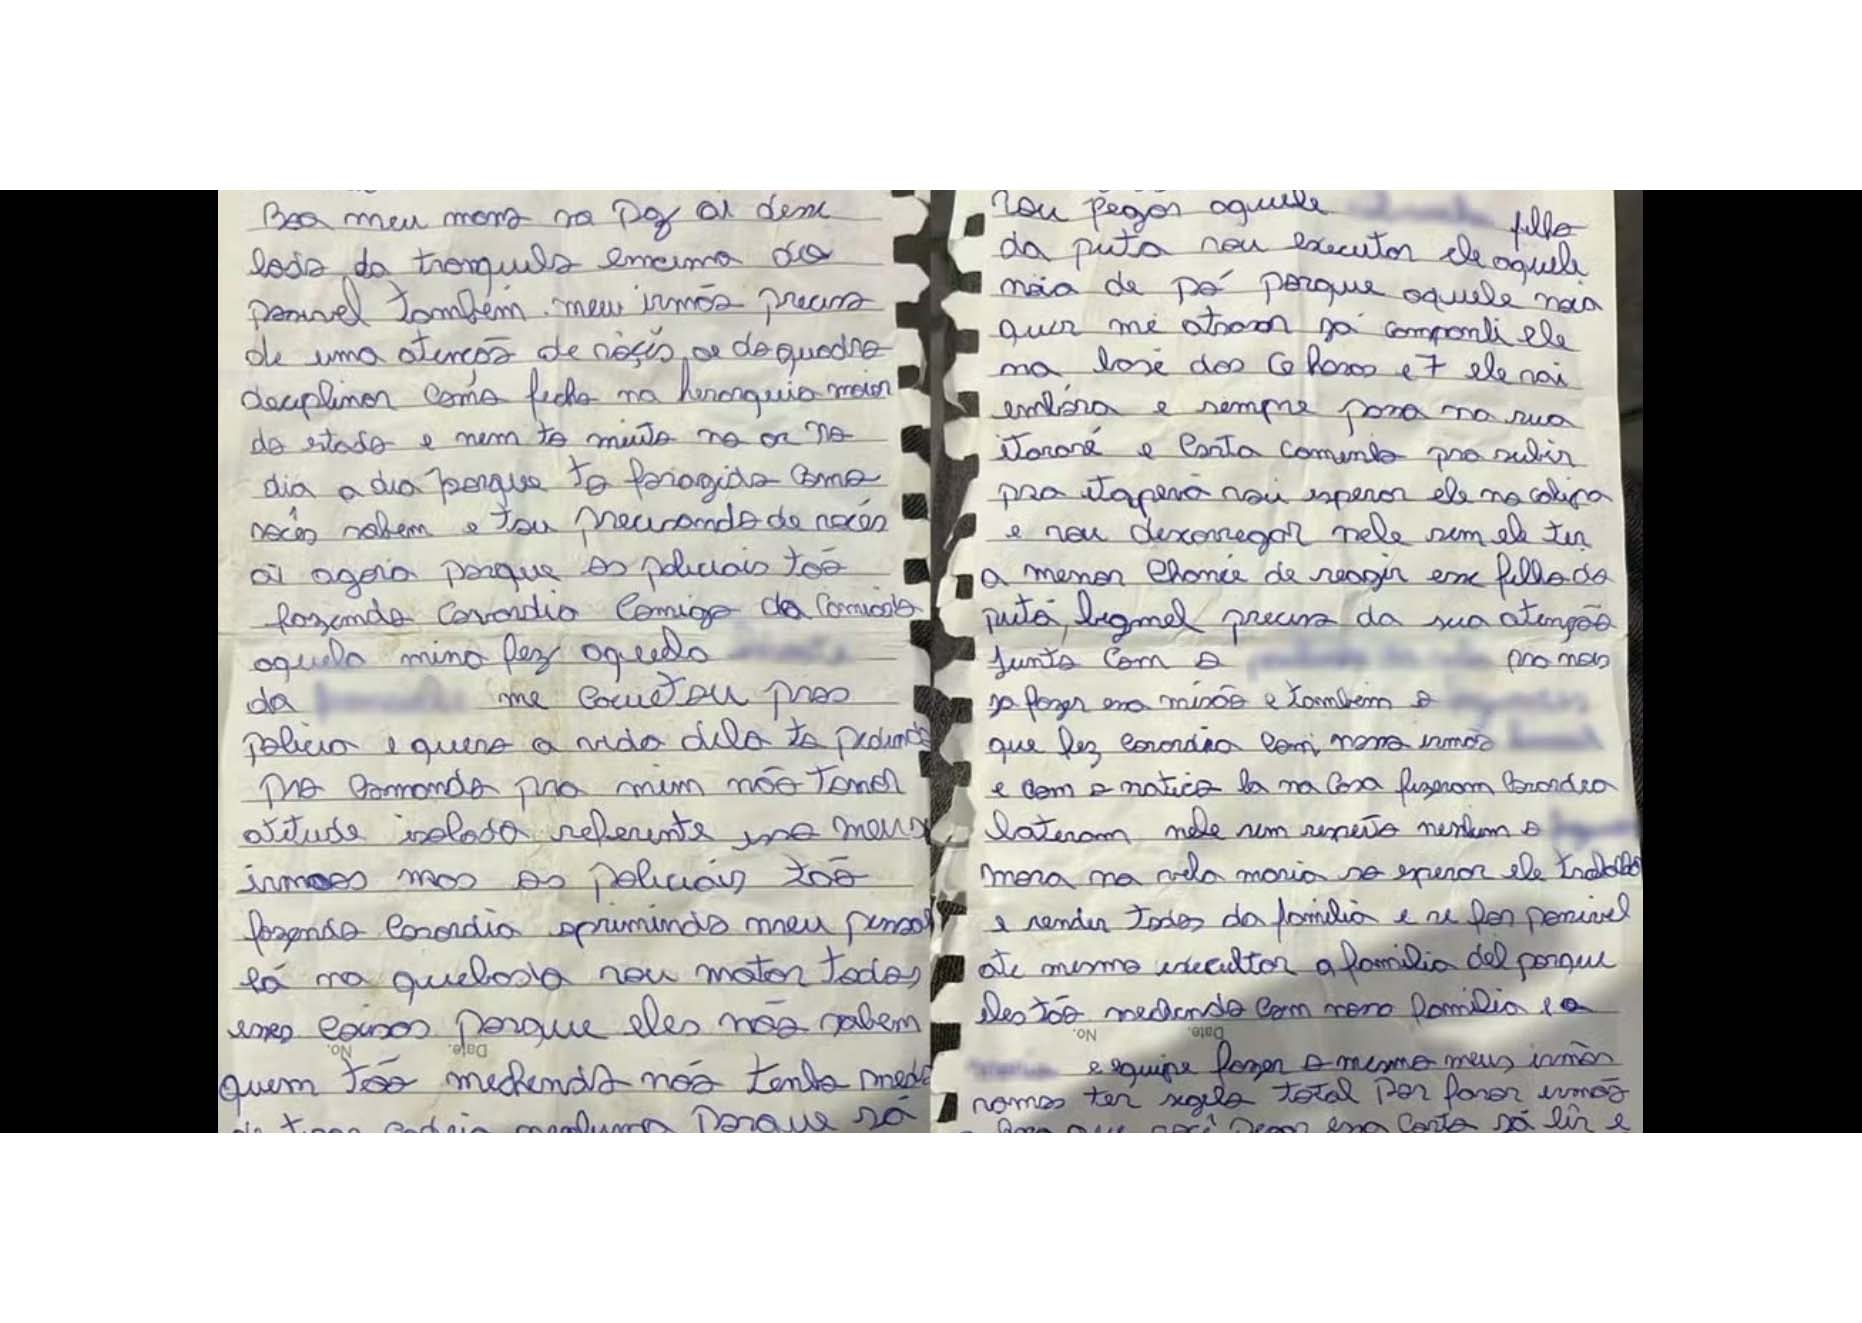 Boa meu mano na paz ai desse
lado da tranquilo emcima do
possivel também. meu irmão precisa
de uma atencão de vocês, so do quadro
deciplinar como fecho na herarquia maior
do estado e nem to muito no ar no
dia a dia porque to foragido como
vocês sabem e tou precisando de vocês
ai agora porque os policiais tão
fazendo covardia comigo
aquela mina fez aquela
da me caguetou pros
policia e quero a vida dela to pedindo
pro comando pra mim não tomar
atitude isolada referente isso meus
irmoes mas os policiais tão
fazendo covardia oprimindo meu pessoal
lá na quebrada vou matar todos
esses coisas porque eles não sabem
No. Date.
quem tão mechendo não tenho medo
de tirar cadeia nenhuma porque só
vou pegar aquele filho
da puta vou executar ele aquele
noia de pó porque aquele noia
quer me atrasar só componhi ele
na base dos e 7 ele vai
embora e sempre passa na rua
itararé e corta caminho pra subir
pra itapeva vou esperar ele na
e vou descarregar nele sem ele ter
a menor chance de reagir esse filho da
puta, precisa da sua atenção
junto com o pro nois
so fazer essa misão e também o
que fez covardia com nosso irmão
e com o la na casa fizeram covardia
bateram nele sem respeito nenhum o
mora na vila maria so esperar ele trabalho
e render todos da familia e se for possivel
ate mesmo execultor a familia del porque
eles tão mechendo com nosso familia e o
No. Date.
e equipe fazer o mesmo meus irmão
vamos ter sigilo total por favor irmão
você pegar essa carta só lir e